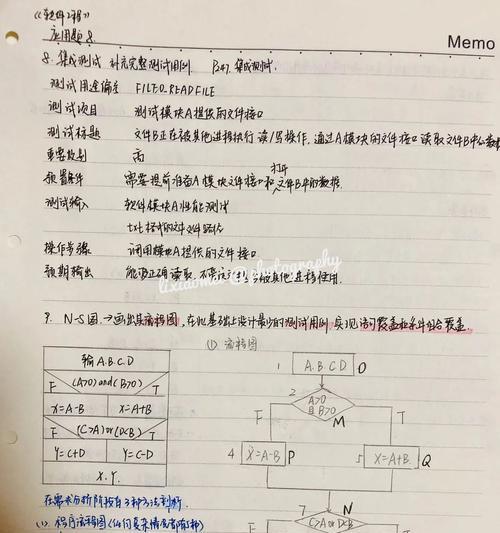 《软件工程》
应用题8.
Memo
8. 集成测试 补充完整测试用例 P247 集成测试.
测试用途编号 FILTO_READFILE
测试项目 测试模块A提供的文件接口
测试标题 文件B正在被其他进程执行读/写操作, 通过A模块的文件接口读取文件B中的数据
重要级别 高
预置条件 需要提前准备A模块文件接口和打开文件B中的数据.
测试输入 软件模块A性能测试
txt格式的文件
操作步骤 调用模块A提供的文件接口
预期输出 能够正确读取, 不管这文件
被其他进程使用.
lixiaomi @photography
9. N-S图→画出其流程图, 在此基础上设计最少的测试用例 实现语句覆盖和条件组合覆盖.
(1) 流程图
输A.B.C.D
F (A>0)and(B>0) T
X=A-B X=A+B
F (C>A)or(D<B) T
Y=C+D Y=C-D
X.Y.
1 A.B.C.D O
2 A>0 且B>0 M
F T
4 X=A-B P
5 X=A+B Q
7 N
C>A or D<B
在需求分析阶段有3种方法判断.
(1) 程序流程图